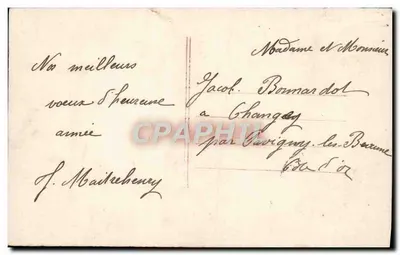 Nos meilleurs
voeux d'heureuse
année
J. Maitrehenry
Madame et Monsieur
Jacob Bonnardot
a Changey
par Savigny-les-Beaune
Côte d'or
CPAPH